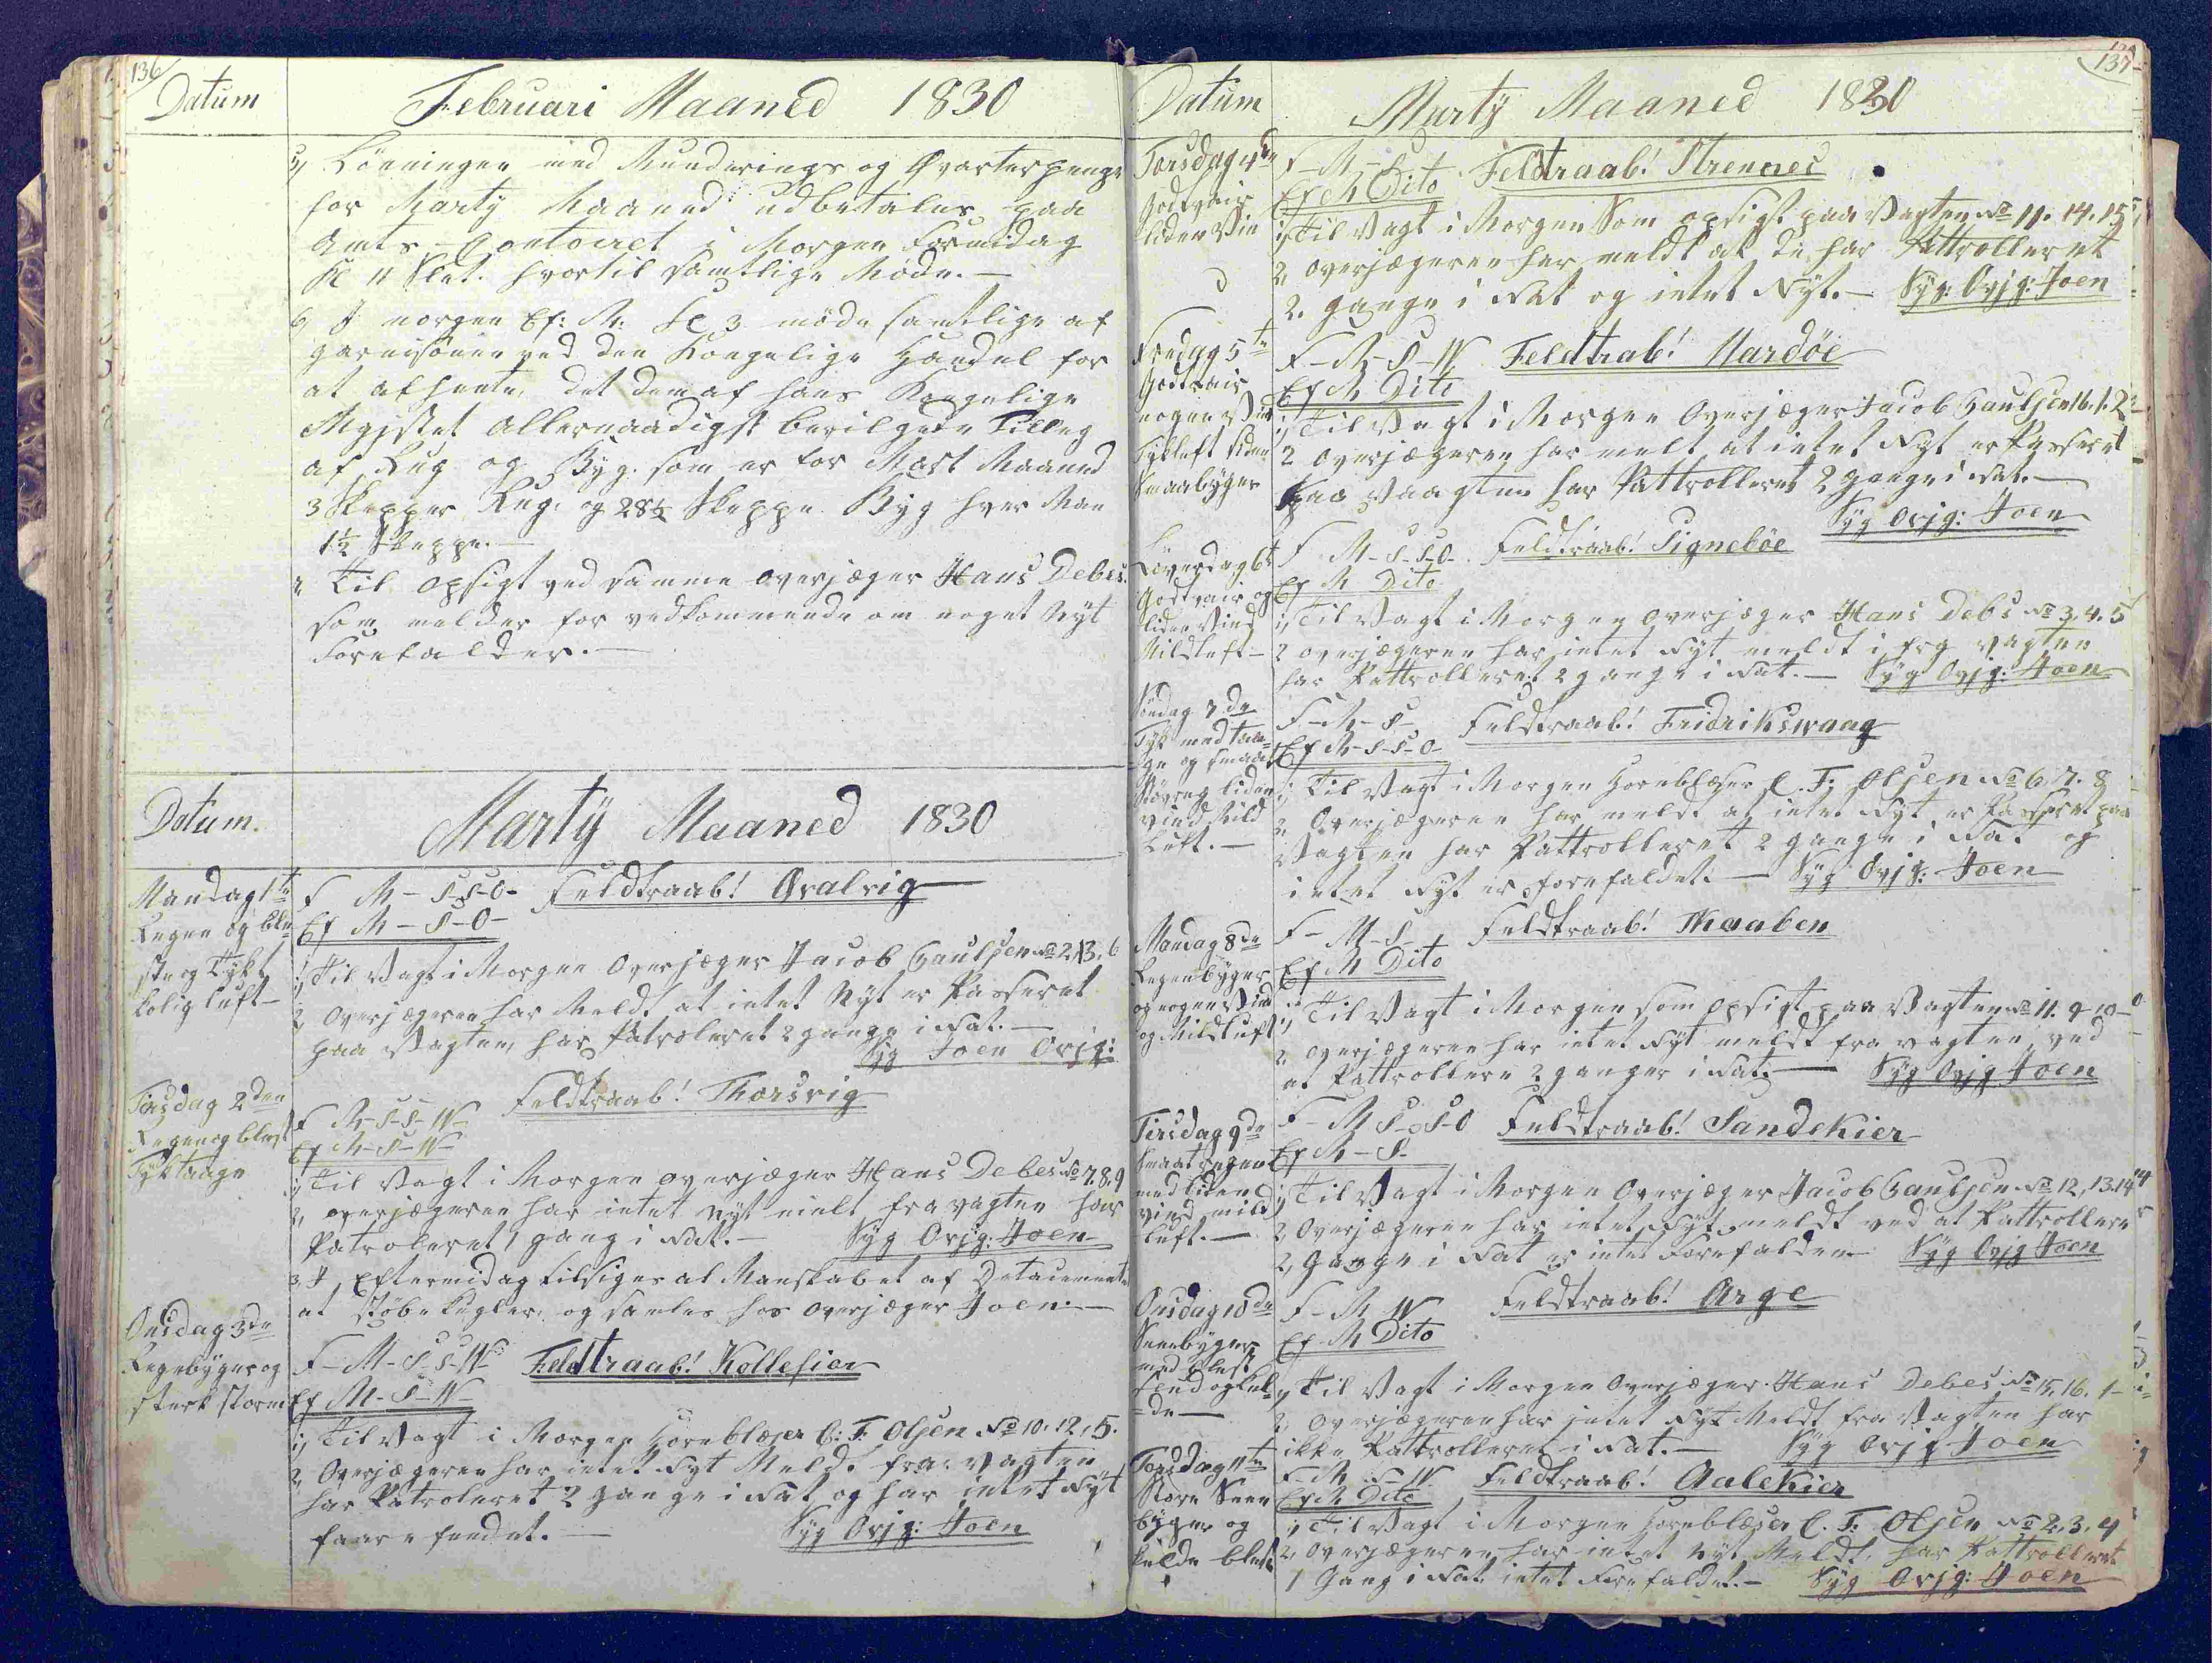 136
Datum
Februari Maaned 1830
5, Lönningen med Munderings og Qvarterpenge
for Marty Maaned udbetales paa
Amts-Contoiret i Morgen Formidag
Kl 11 Slet. hvortil samtlige Möde.—
6, I morgen Ef: M: Kl 3 möde samtlige af
garnisonen ved den Kongelige Handel for
at afhente, det dem af hans Kongelige
allernaadigst bevilgede Tilleg
af Rug og Byg. som er for Mart Maaned
3 Skepper Rug, og 28½ Skeppe Byg hver Man
1½ Skeppe.—
Til opsigt ved samme overjæger Hans Debes.
som melder for vedkommende om noget Nyt
Forefalder.—
Datum.
Marty Maaned 1830
Mandag 1te
Regen og ble-
st og Tykt
kolig luft—
F M-S-S-O- Feldtraab! Qvalvig
Ef M-S-O-
1, Til Vagt i Morgen Overjæger Jacob Gaulsen No 2, 13, 6
2, Overjægeren har Meldt at intet Nyt er Passeret
paa Vagten, har Patroleret 2 gange i Nat.—
Syg Joen Ovjg:
Tirsdag 2den
Regen og blest
Tyktaage
F M-S-S-W- Feldtraab! Thorsvig
Ef M-S-W-
1, Til Vagt i Morgen overjæger Hans Debes No 7. 8, 9
2, overjægeren har intet nyt melt fra vagten har
Patroleret 1 gang i Nat.— Syg Ovjg: Joen
3, I Eftermidag tilsiges al Manskabet af Detacemente
at stöbe kugler, og samles hos overjæger Joen.—
Onsdag 3de
Regebyger og
sterk storm
F-M-S-S-W- Feldtraab! Kollefier
Ef M-S-W-
1, Til Vagt i Morgen Hornblæser C: F. Olsen No 10. 12, 5.
2, Overjægeren har intet Nyt Meldt fra Vagten
har Patroleret 2 gange i Nat og har intet Nyt
faare fundet.— Syg Ovjg: Joen
137
Datum
Marty Maaned 1830
Torsdag 4de
Godtvair
liden Vin
d
F-M-S Feldtraab! Strennes
Ef M Dito
1, Til Vagt i Morgen Som opsigt paa Vagten No 11. 14. 15
2, overjægeren har meldt at de har Pattrolleret
2. gange i Nat og intet Nyt.— Syg: Ovjg: Joen
Fredag 5te
Godtvair
nogen Vind
Tykluft siden
smaabyger
F-M-S-W Feldtrab! Nardöe
Ef M Dito
1, Til Vagt i Morgen Overjæger Jacob Gaulsen 16. 1. 2
2 Overjægeren har melt at intet Nyt er Passeret
paa Vaagten har Pattrolleret 2 gange i Nat.—
Syg Ovjg: Joen
Löverdag 6t
Godtvair og
liden Vind
Mildluft—
F M-S-S-O- Feldtraab! Signeböe
Ef M Dito
1, Til Vagt i Morgen Overjæger Hans Debs No 3, 4. 5
2 overjægeren har intet Nyt meldt i fra vagten
har Pattrolleret 2 gange i Nat.— Syg Ovjg: Joen
Söndag 7de
Tyk med taa-
ge og smaat
Stövreg liden
vind Mild
Luft.—
F-M-S- Feldtraab! Fridrikswaag
Ef M-S-S-O-
1, Til Vagt i Morgen Hornblæser C. F: Olsen No 6. 7. 8
2, Overjægeren har meldt at intet Nyt er Passeret paa
Vagten har Pattrolleret 2 gange i Nat og
intet Nyt er forefaldet.— Syg Ovjg: Joen
Mandag 8de
Regenbyger
og nogen Vind
og Mildluft
F-M-S- Feldtraab! Skaaben
Ef M Dito
1, Til Vagt i Morgen som opsigt paa Vagten No 11. 9 10
2 overjægeren har intet Nyt meldt fra vagten ved
at Pattrollere 2 ganger i Nat.— Syg Ovjg Joen
Tirsdag 9de
Smaat regen
med liden
vind mild
luft.—
F-M S-S-O Feldtraab! Sandekier
Ef M-S-
1, Til Vagt i Morgen Overjæger Jacob Gaulsen No 12, 13. 14
2 Overjægeren har intet Nyt meldt ved at Pattrollere
2, Gange i Nat er intet Forefalden Syg Ovjg Joen
Onsdag 10de
Sneebyger
med blest
og kul-
-de—
F-M W Feldtraab! Arge
Ef M Dito
1, Til Vagt i Morgen Overjæger Hans Debes No 15, 16. 1-
2, Overjægeren har intet Nyt Meldt fra Vagten har
ikke Pattrolleret i Nat.— Syg Ovjg Joen
Torsdag 11te
Store Snee
byger og
kulde blest
F-M N-W. Feldtraab! Aalekier
Ef M Dito
1, Til Vagt i Morgen Hornblæser C. F: Olsen No 2, 3. 4
2, Overjægeren har intet Nyt Meldt, har Pattrolleret
1 Gang i Nat intet Forefaldet.— Syg Ovjg: Joen